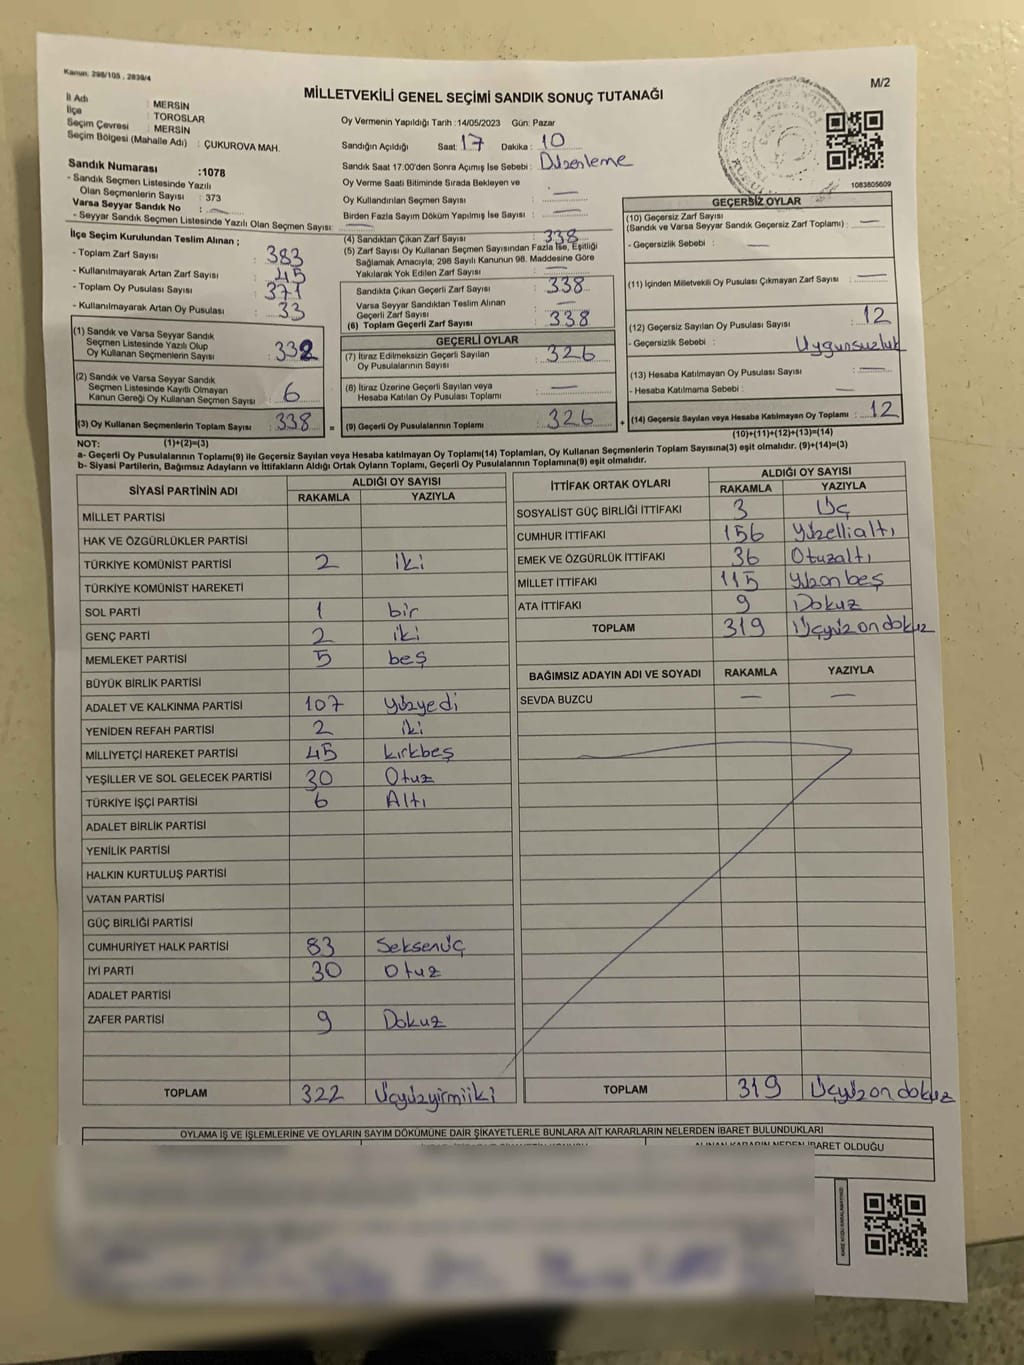 Kanun. 298/105 , 2839/4
M/2
MİLLETVEKİLİ GENEL SEÇİMİ SANDIK SONUÇ TUTANAĞI
İl Adı : MERSİN
İlçe : TOROSLAR
Seçim Çevresi : MERSİN
Seçim Bölgesi (Mahalle Adı) : ÇUKUROVA MAH.
Sandık Numarası :1078
- Sandık Seçmen Listesinde Yazılı
Olan Seçmenlerin Sayısı : 373
Varsa Seyyar Sandık No :
- Seyyar Sandık Seçmen Listesinde Yazılı Olan Seçmen Sayısı:
Oy Vermenin Yapıldığı Tarih :14/05/2023 Gün: Pazar
Sandığın Açıldığı Saat: 17 Dakika: 10
Sandık Saat 17:00'den Sonra Açımış İse Sebebi : Düzenleme
Oy Verme Saati Bitiminde Sırada Bekleyen ve
Oy Kullandırılan Seçmen Sayısı : —
Birden Fazla Sayım Döküm Yapılmış İse Sayısı : —
1083805609
İlçe Seçim Kurulundan Teslim Alınan ;
- Toplam Zarf Sayısı : 383
- Kullanılmayarak Artan Zarf Sayısı : 45
- Toplam Oy Pusulası Sayısı : 371
- Kullanılmayarak Artan Oy Pusulası : 33
(1) Sandık ve Varsa Seyyar Sandık
Seçmen Listesinde Yazılı Olup
Oy Kullanan Seçmenlerin Sayısı : 332
(2) Sandık ve Varsa Seyyar Sandık
Seçmen Listesinde Kayıtlı Olmayan
Kanun Gereği Oy Kullanan Seçmen Sayısı : 6
(3) Oy Kullanan Seçmenlerin Toplam Sayısı : 338 =
(4) Sandıktan Çıkan Zarf Sayısı : 338
(5) Zarf Sayısı Oy Kullanan Seçmen Sayısından Fazla İse, Eşitliği
Sağlamak Amacıyla; 298 Sayılı Kanunun 98. Maddesine Göre
Yakılarak Yok Edilen Zarf Sayısı : —
Sandıkta Çıkan Geçerli Zarf Sayısı : 338
Varsa Seyyar Sandıktan Teslim Alınan
Geçerli Zarf Sayısı : —
(6) Toplam Geçerli Zarf Sayısı : 338
GEÇERLİ OYLAR
(7) İtiraz Edilmeksizin Geçerli Sayılan
Oy Pusulalarının Sayısı : 326
(8) İtiraz Üzerine Geçerli Sayılan veya
Hesaba Katılan Oy Pusulası Toplamı : —
(9) Geçerli Oy Pusulalarının Toplamı : 326 +
GEÇERSİZ OYLAR
(10) Geçersiz Zarf Sayısı
(Sandık ve Varsa Seyyar Sandık Geçersiz Zarf Toplamı) : —
- Geçersizlik Sebebi : —
(11) İçinden Milletvekili Oy Pusulası Çıkmayan Zarf Sayısı : —
(12) Geçersiz Sayılan Oy Pusulası Sayısı : 12
- Geçersizlik Sebebi : Uygunsuzluk
(13) Hesaba Katılmayan Oy Pusulası Sayısı : —
- Hesaba Katılmama Sebebi : —
(14) Geçersiz Sayılan veya Hesaba Katılmayan Oy Toplamı : 12
NOT: (1)+(2)=(3)
(10)+(11)+(12)+(13)=(14)
a- Geçerli Oy Pusulalarının Toplamı(9) ile Geçersiz Sayılan veya Hesaba katılmayan Oy Toplamı(14) Toplamları, Oy Kullanan Seçmenlerin Toplam Sayısına(3) eşit olmalıdır. (9)+(14)=(3)
b- Siyasi Partilerin, Bağımsız Adayların ve İttifakların Aldığı Ortak Oyların Toplamı, Geçerli Oy Pusulalarının Toplamına(9) eşit olmalıdır.
SİYASİ PARTİNİN ADI ALDIĞI OY SAYISI
RAKAMLA YAZIYLA
MİLLET PARTİSİ
HAK VE ÖZGÜRLÜKLER PARTİSİ
TÜRKİYE KOMÜNİST PARTİSİ 2 iki
TÜRKİYE KOMÜNİST HAREKETİ
SOL PARTİ 1 bir
GENÇ PARTİ 2 iki
MEMLEKET PARTİSİ 5 beş
BÜYÜK BİRLİK PARTİSİ
ADALET VE KALKINMA PARTİSİ 107 yüzyedi
YENİDEN REFAH PARTİSİ 2 iki
MİLLİYETÇİ HAREKET PARTİSİ 45 kırkbeş
YEŞİLLER VE SOL GELECEK PARTİSİ 30 Otuz
TÜRKİYE İŞÇİ PARTİSİ 6 Altı
ADALET BİRLİK PARTİSİ
YENİLİK PARTİSİ
HALKIN KURTULUŞ PARTİSİ
VATAN PARTİSİ
GÜÇ BİRLİĞİ PARTİSİ
CUMHURİYET HALK PARTİSİ 83 Seksenüç
İYİ PARTİ 30 Otuz
ADALET PARTİSİ
ZAFER PARTİSİ 9 Dokuz
TOPLAM 322 Üçyüzyirmiiki
İTTİFAK ORTAK OYLARI ALDIĞI OY SAYISI
RAKAMLA YAZIYLA
SOSYALİST GÜÇ BİRLİĞİ İTTİFAKI 3 Üç
CUMHUR İTTİFAKI 156 Yüzellialtı
EMEK VE ÖZGÜRLÜK İTTİFAKI 36 Otuzaltı
MİLLET İTTİFAKI 115 Yüzonbeş
ATA İTTİFAKI 9 Dokuz
TOPLAM 319 Üçyüzondokuz
BAĞIMSIZ ADAYIN ADI VE SOYADI RAKAMLA YAZIYLA
SEVDA BUZCU — —
TOPLAM 319 Üçyüzondokuz
OYLAMA İŞ VE İŞLEMLERİNE VE OYLARIN SAYIM DÖKÜMÜNE DAİR ŞİKAYETLERLE BUNLARA AİT KARARLARIN NELERDEN İBARET BULUNDUKLARI
ALINAN KARARIN NEDEN İBARET OLDUĞU